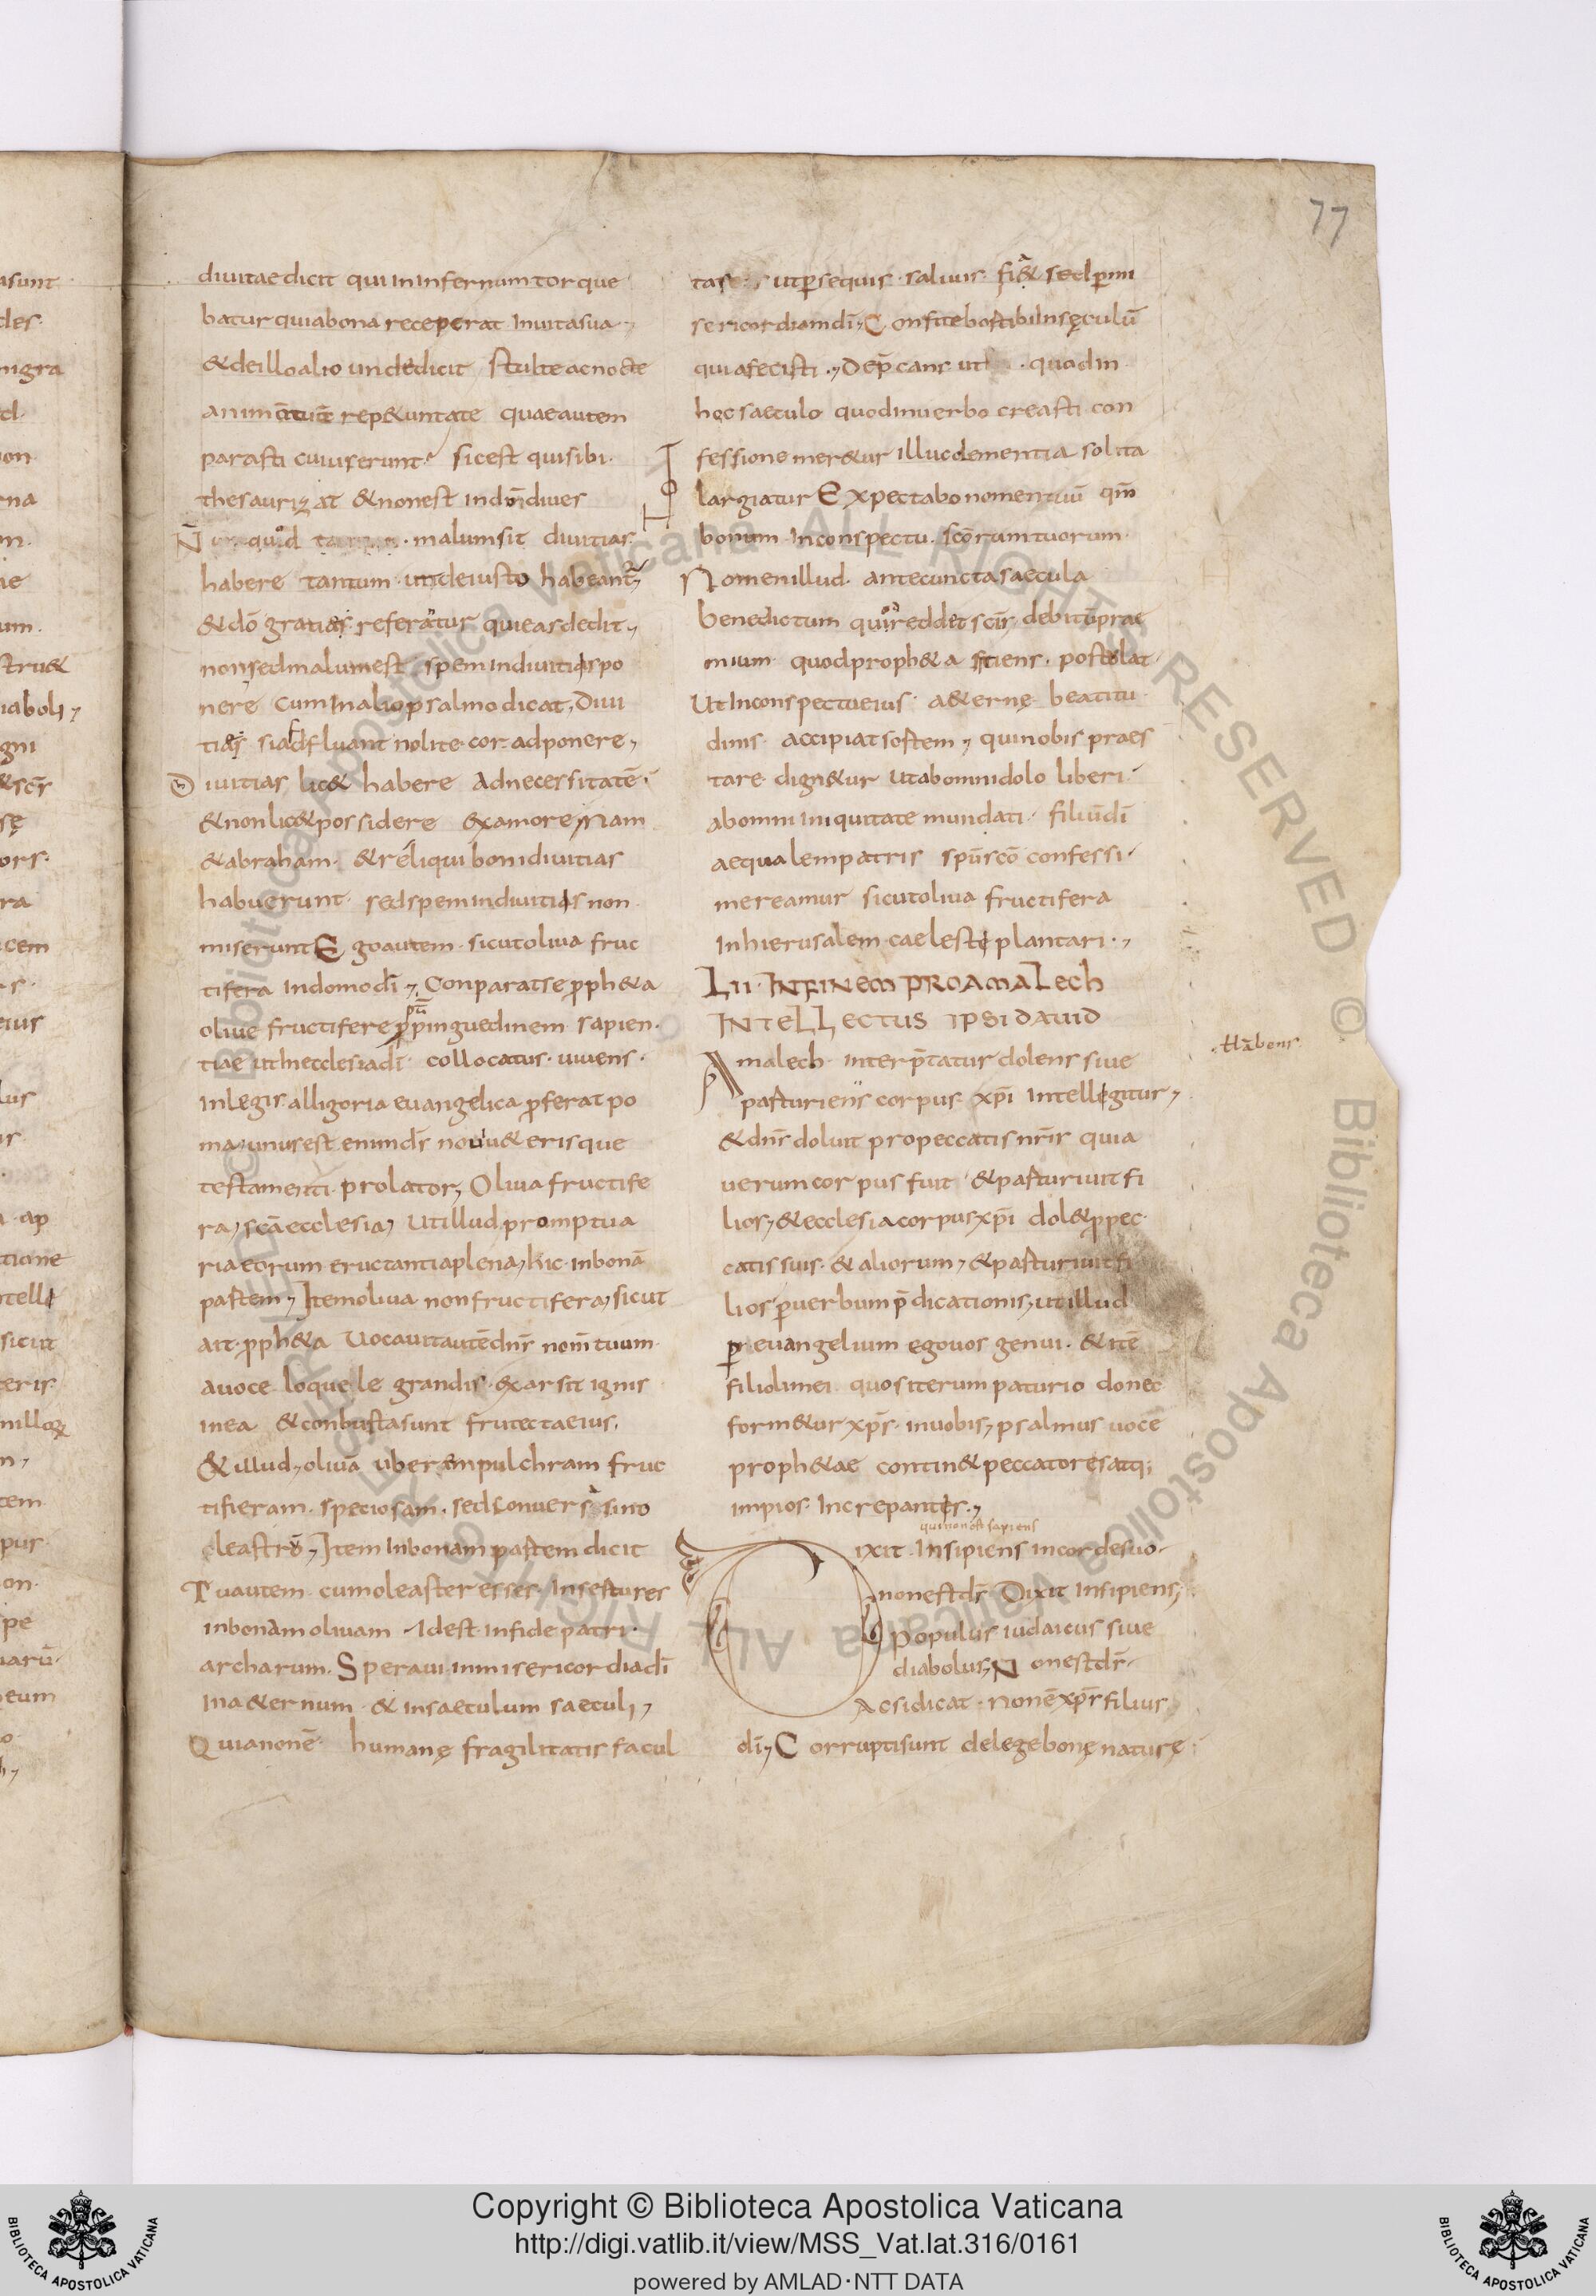 77
diuitae dicit qui in infernum torque
batur quia bona receperat in uita sua
& de illo alio unde dicit stulte ac nocte
rep&unt a te quae autem
parasti cuius erunt sic est qui sibi
thesaurizat & non est in dm̄ diues
malum sit diuitias
habere tantum unde iusto habeant
& dō gratias referatur qui eas dedit
non sed malum est spem in diuitias po
nere cum in alio psalmo dicat, Diui
tias si adfluant nolite cor adponere,
Diuitias lic& habere ad necessitatē
& non lic& possidere ex amore, Nam
& abraham & reliqui boni diuitias
habuerunt sed spem in diuitias non
miserunt Ego autem sicut oliua fruc
tifera in domo dī, Conparat se proph&a
oliue fructifere propinguedinem sapien
tiae ut in ecclesia dī collocatus uiuens
in legis alligoria euangelica proferat po
ma, unus est enim ds̄ noui u&erisque
testamenti prolator, Oliua fructife
ra, scā ecclesia, ut illud promptua
ria eorum eructantia plena, hic in bonā
partem, Item oliua non fructifera, sicut
ait proph&a Uocauit autē dn̄s nom̄ tuum
a uoce loquele grandis exarsit ignis
in ea & conbusta sunt frutecta eius,
& illud, oliuā uberem pulchram fruc
tiferam speciosam, sed conuersa in o
leastrō, Item in bonam partem dicit
Tu autem cum oleaster esses insertus es
in bonam oliuam Idest in fide patri
archarum. Speraui in misericordia dī
in a&ernum & in saeculum saeculi,
Quia non ē humanę fragilitatis facul
ut per se quis saluus fi& sed per mi
sericordiam dī, Confitebor tibi in sęculū
quia fecisti, Dep̄cans ut quod in
hoc saeculo quod in uerbo creasti con
fessione mer&ur illuc clementia solita
largiatur Expectabo nomen tuū qm̄
bonum in conspectu scōrum tuorum
Nomen illud ante cuncta saecula
benedictum qui redd& scīs debitū prae
mium quod proph&a sciens postolat
Ut in conspectu eius a&ernę beatitu
dinis accipiat sortem, qui nobis praes
tare dign&ur ut ab omni dolo liberi
ab omni iniquitate mundati filiū dī
aequalem patris spū scō confessi
mereamur sicut oliua fructifera
in hierusalem caeleste plantari,
LII IN FINEM PRO AMALECH
INTELLECTUS IPSI DAUID
Amalech interp̄tatur dolens siue
parturiens corpus xp̄i intellegitur,
.Habens
& dn̄s doluit pro peccatis nr̄is quia
uerum corpus fuit & parturiuit fi
lios, & ecclesia corpus xp̄i dol& pro pec
catis suis & aliorum, & parturiuit fi
lios per uerbum p̄dicationis, ut illud
per euangelium ego uos genui & itē
filioli mei quos iterum paturio donec
form&ur xp̄s in uobis, psalmus uocē
proph&ae contin& peccatores atq;
impios increpantes,
qui non est sapiens
Dixit insipiens in corde suo
non est ds̄ Dixit insipiens,
Populus iudaicus siue
diabolus, Non est ds̄
Ac si dicat non ē xp̄s filius
dī, Corrupti sunt de lege bonę naturę
Copyright © Biblioteca Apostolica Vaticana
http://digi.vatlib.it/view/MSS_Vat.lat.316/0161
powered by AMLAD·NTT DATA
BIBLIOTECA APOSTOLICA VATICANA
BIBLIOTECA APOSTOLICA VATICANA